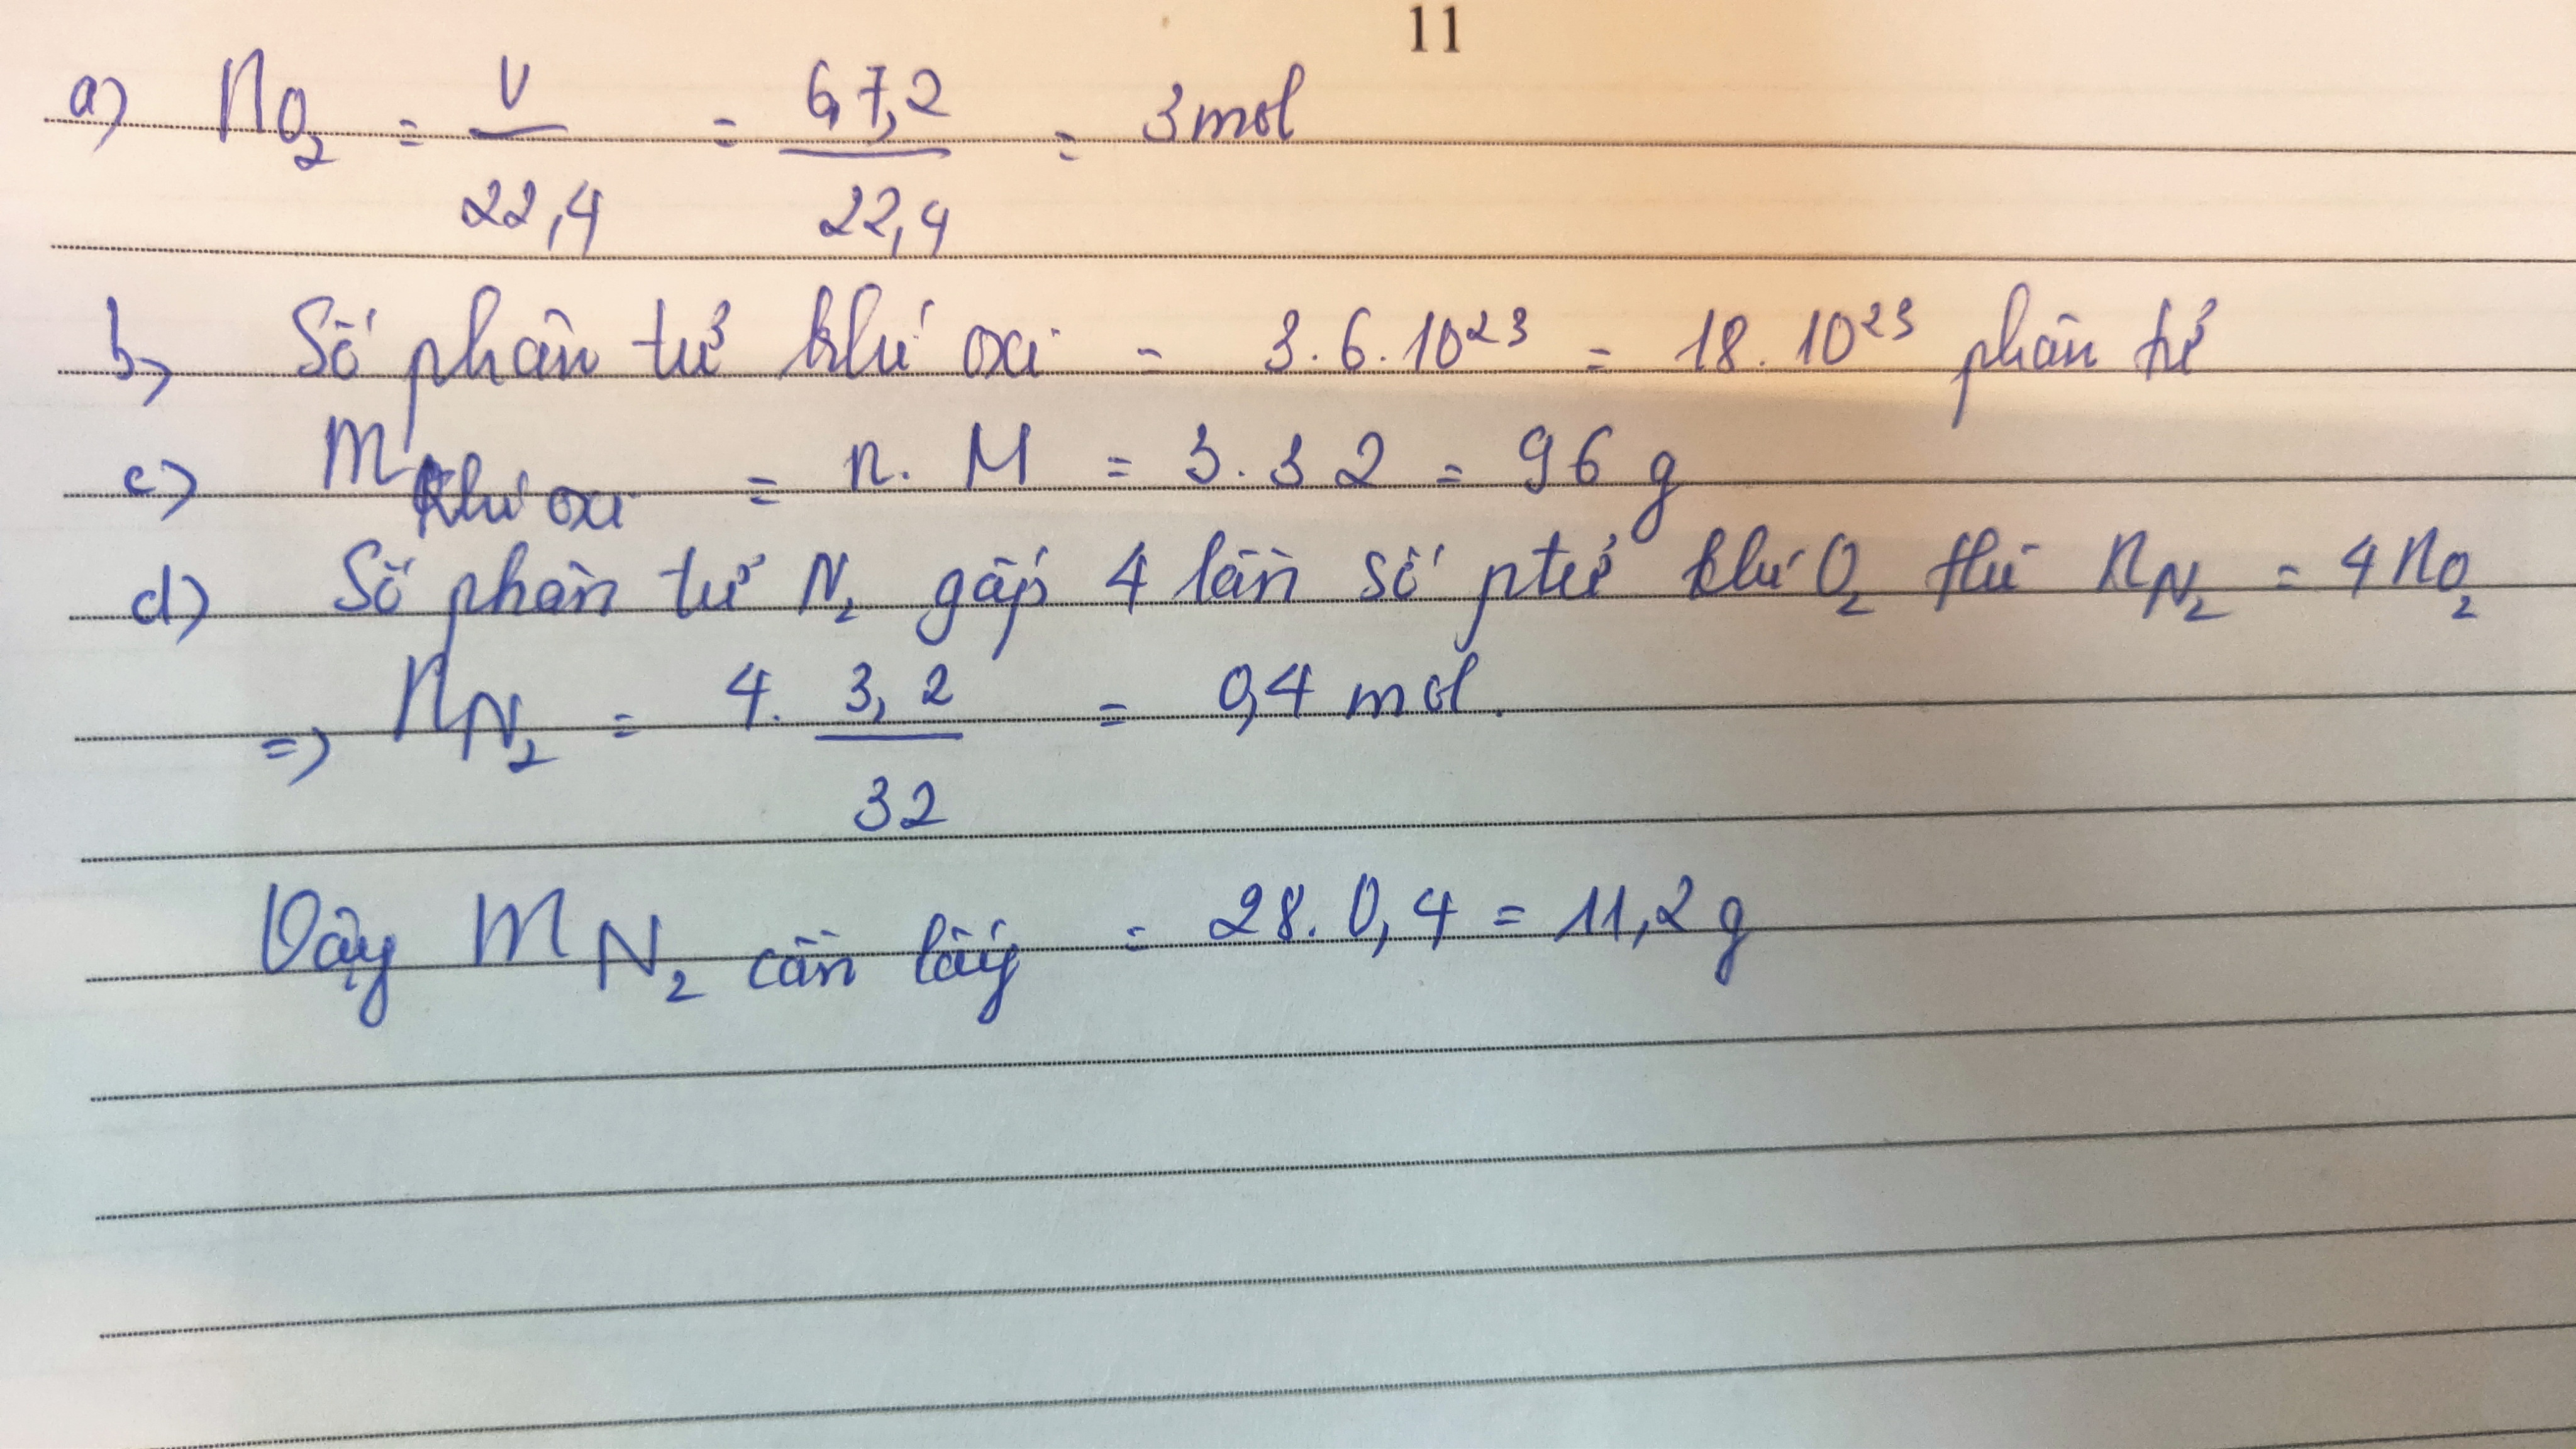 11
a) nO₂ = V/22,4 = 67,2/22,4 = 3 mol
b) Số phân tử khí oxi = 3.6.10²³ = 18.10²³ phân tử
c) m khí oxi = n. M = 3.32 = 96 g
d) Số phân tử N₂ gấp 4 lần số ptử khí O₂ thì nN₂ = 4 nO₂
=> nN₂ = 4. 3,2/32 = 0,4 mol.
Vậy mN₂ cần lấy = 28. 0,4 = 11,2 g